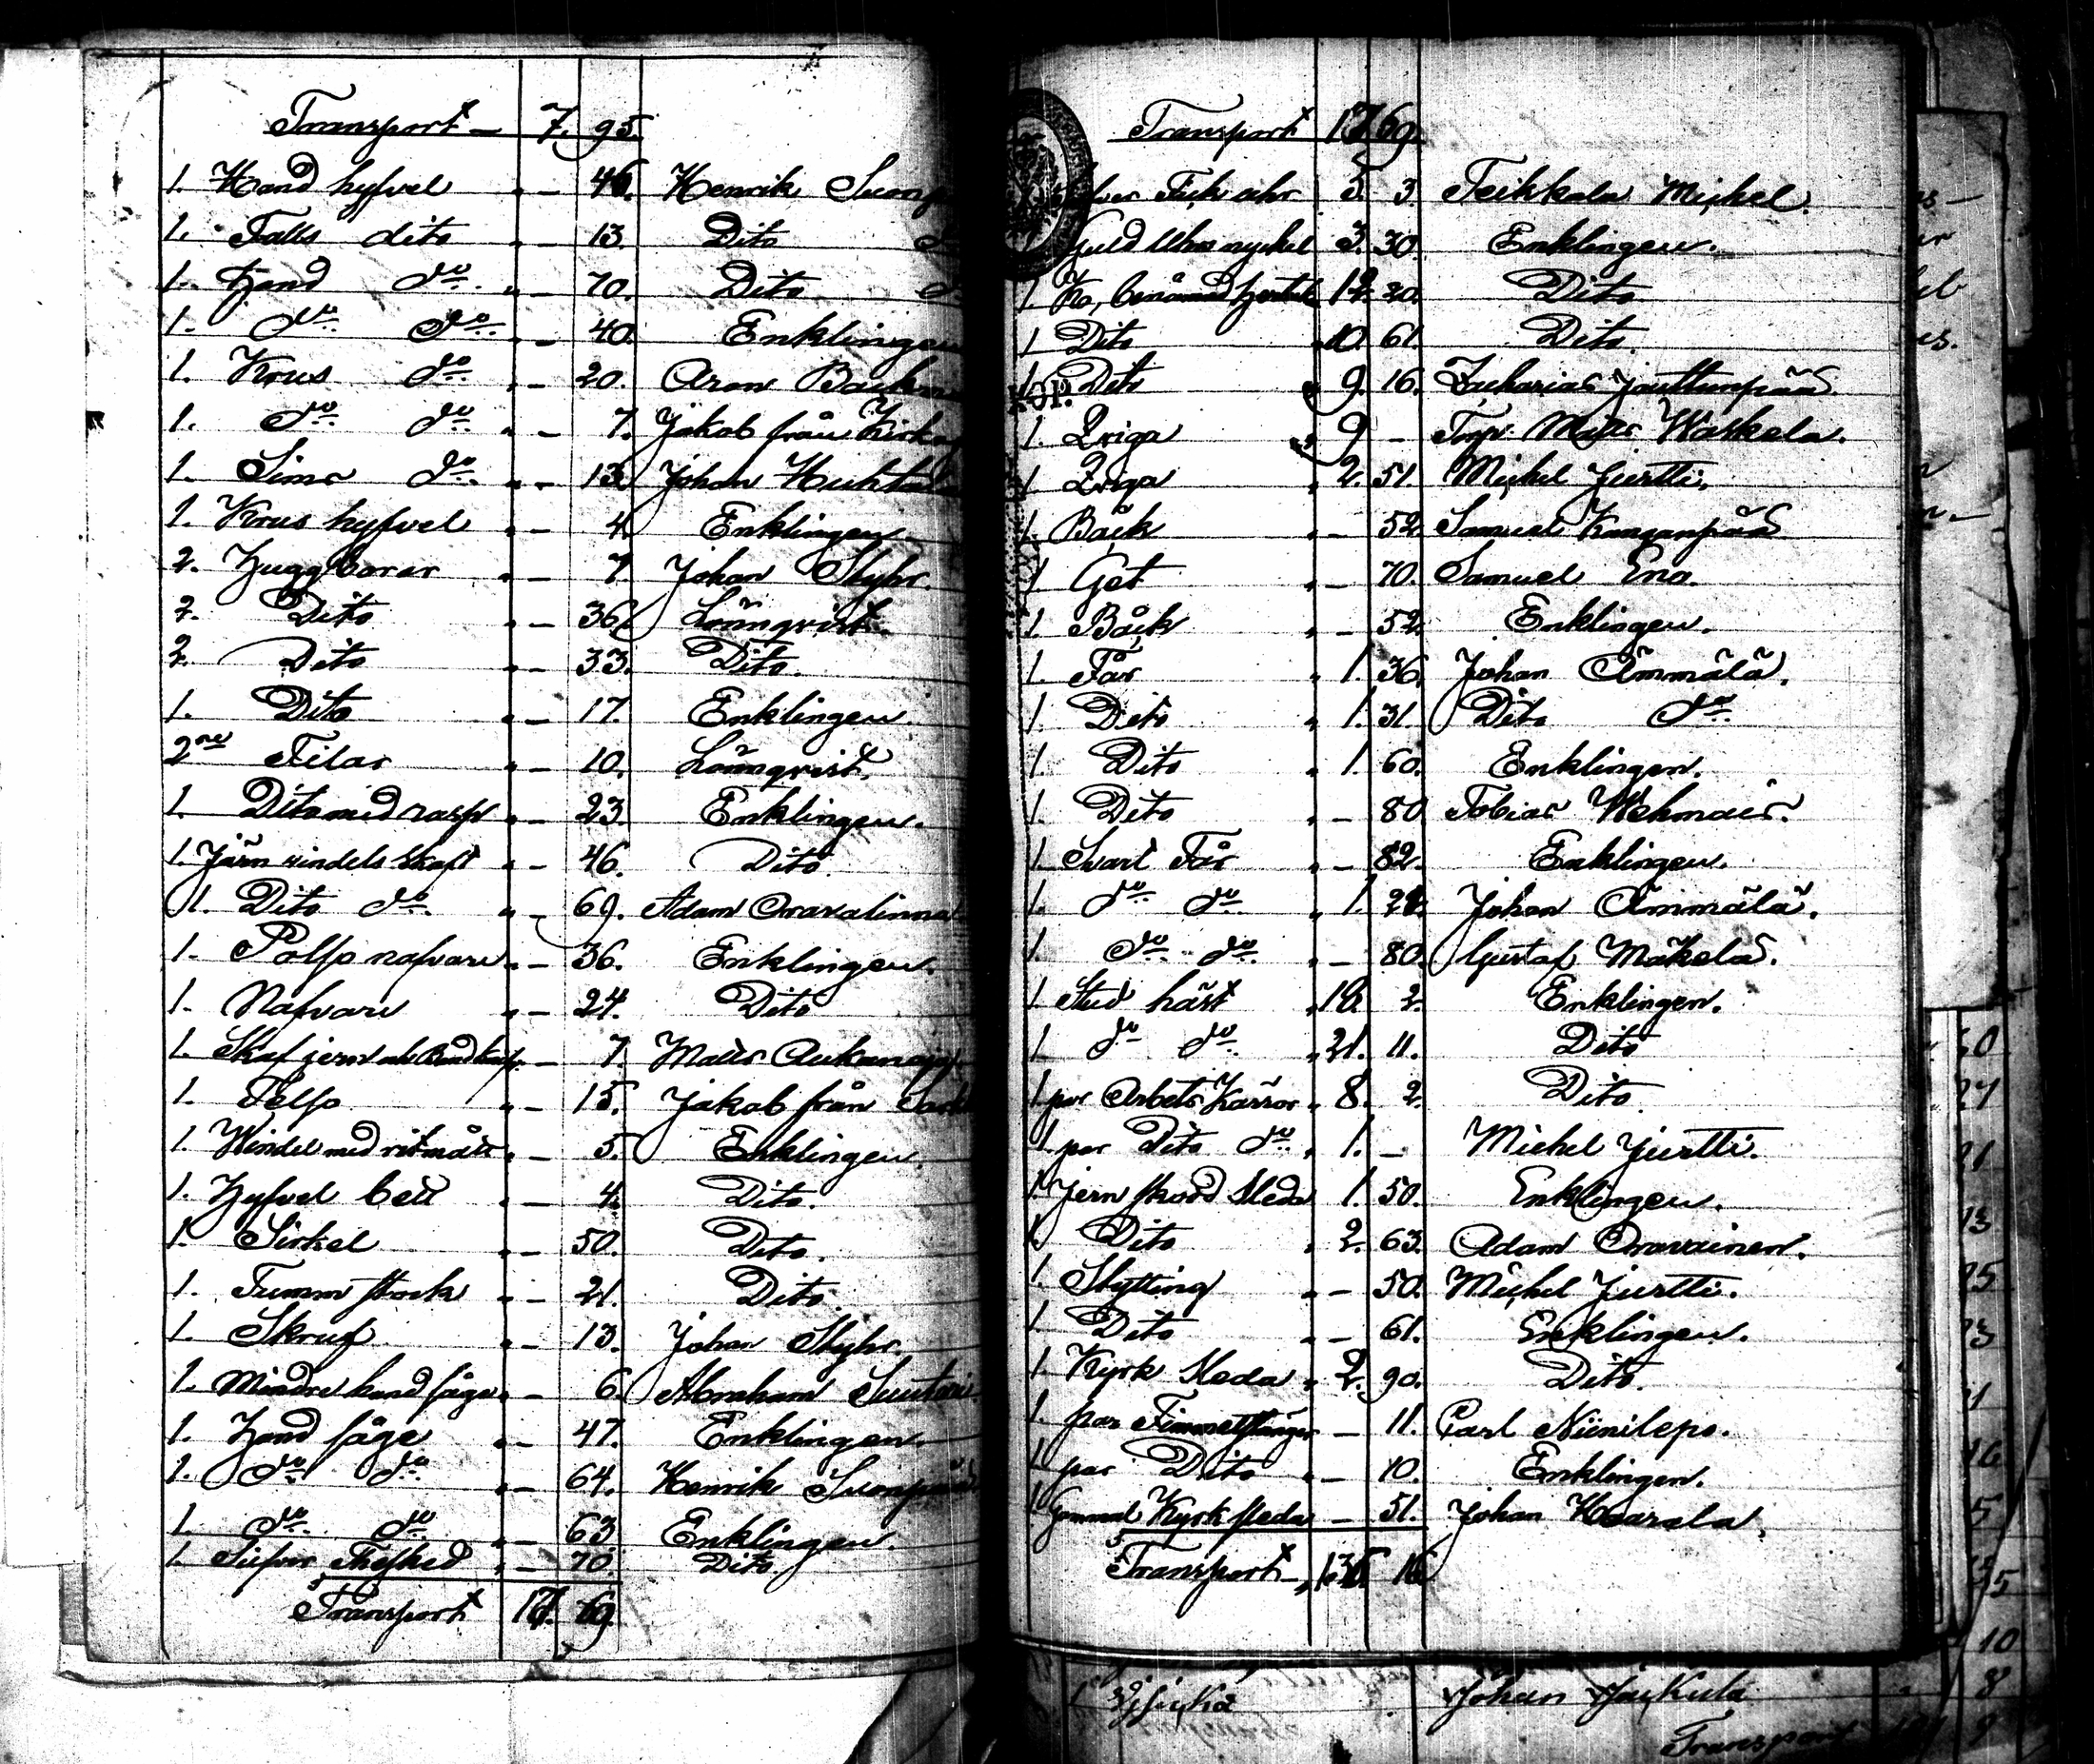 Transport — 7. 95.
1. Hand hyfvel " — 46. Henrik
1. Falls dito " — 13 Dito
1. Hand do " — 70. Dito
1. do do " — 40. Enklingen
1. Krus do " — 20. Aron Backm
1. do do " — 7. Jakob från Kirka
1. Sims do " — 13 Johan Huhtala
1. Krus hyfvel " — 4 Enklingen
2. Huggborar " — 7 Johan Skyhr.
2. Dito " — 36 Lönnqvist.
2. Dito " — 33. Dito.
1. Dito " — 17. Enklingen.
2ne Filar " — 10. Lönnqvist.
1. Dito med rasp " — 23. Enklingen.
1. Järn vindels skaft " — 46. Dito.
1. Dito do " — 69. Adam Oravalinna
1. Polso nafvare " — 36. Enklingen.
1. Nafvare " — 24. Dito
1. Skaf jern " — 7 Matts
1. Telso " — 15. Jakob från
1. Windel med ritmått " — 5. Enklingen.
1. Hyfvel bett " — 4. Dito.
1. Sirkel " — 50. Dito.
1. Tumm stock " — 21. Dito.
1. Skruf " — 13. Johan Skyhr.
1. Mindre hand såge " — 6. Abraham Suutari
1. Hand såge " — 47. Enklingen.
1. do do " — 64. Henrik
1. do do " — 63 Enklingen.
1. Silfver Thesked " — 70. Dito.
Transport 17. 69.
Transport 17 69.
Fick uhr 5. 3 Teikkala Michel.
Guld Uhrs nyckel 3. 30. Enklingen.
1 Ko, benämnd 12. 20. Dito
1 Dito " 10. 61. Dito.
1 Dito " 9. 16. Zacharias Jouttunpää.
1. Qviga " 9 — Torp. Matts Waskela.
1 Qviga " 2. 51. Michel Jurtti.
1. Bäck " — 52. Samuel Kanganpää
1 Get " — 70. Samuel Eno.
1. Båck " — 52. Enklingen.
1. Får " 1. 36. Johan Ämmälä.
1. Dito " 1. 31. Dito do
1. Dito " 1. 60. Enklingen.
1. Dito " — 80 Tobias Wehmais.
1 Svart Får " — 82. Enklingen.
1. do do " 1. 21. Johan Ämmälä.
1. do do " — 80. Gustaf Mäkelä.
1 Stud häst " 18. 2. Enklingen.
1 do do " 21. 11. Dito
1 par Arbets Kärror " 8. 2. Dito.
1. par Dito do " 1. — Michel Jurtti.
1. Jern skodd Sleda 1. 50. Enklingen.
1. Dito " 2. 63. Adam Oravainen.
1. Skytting " — 50. Michel Jurtti.
1 Dito " — 61. Enklingen.
1. Kyrk Sleda " 2. 90. Dito.
1. par Fimmelstänger — 11. Carl Niinilepo.
1 par Dito " — 10. Enklingen.
1 Gammal Kyrk sleda — 51. Johan Haarala.
Transport " 136 16
Johan
Transport